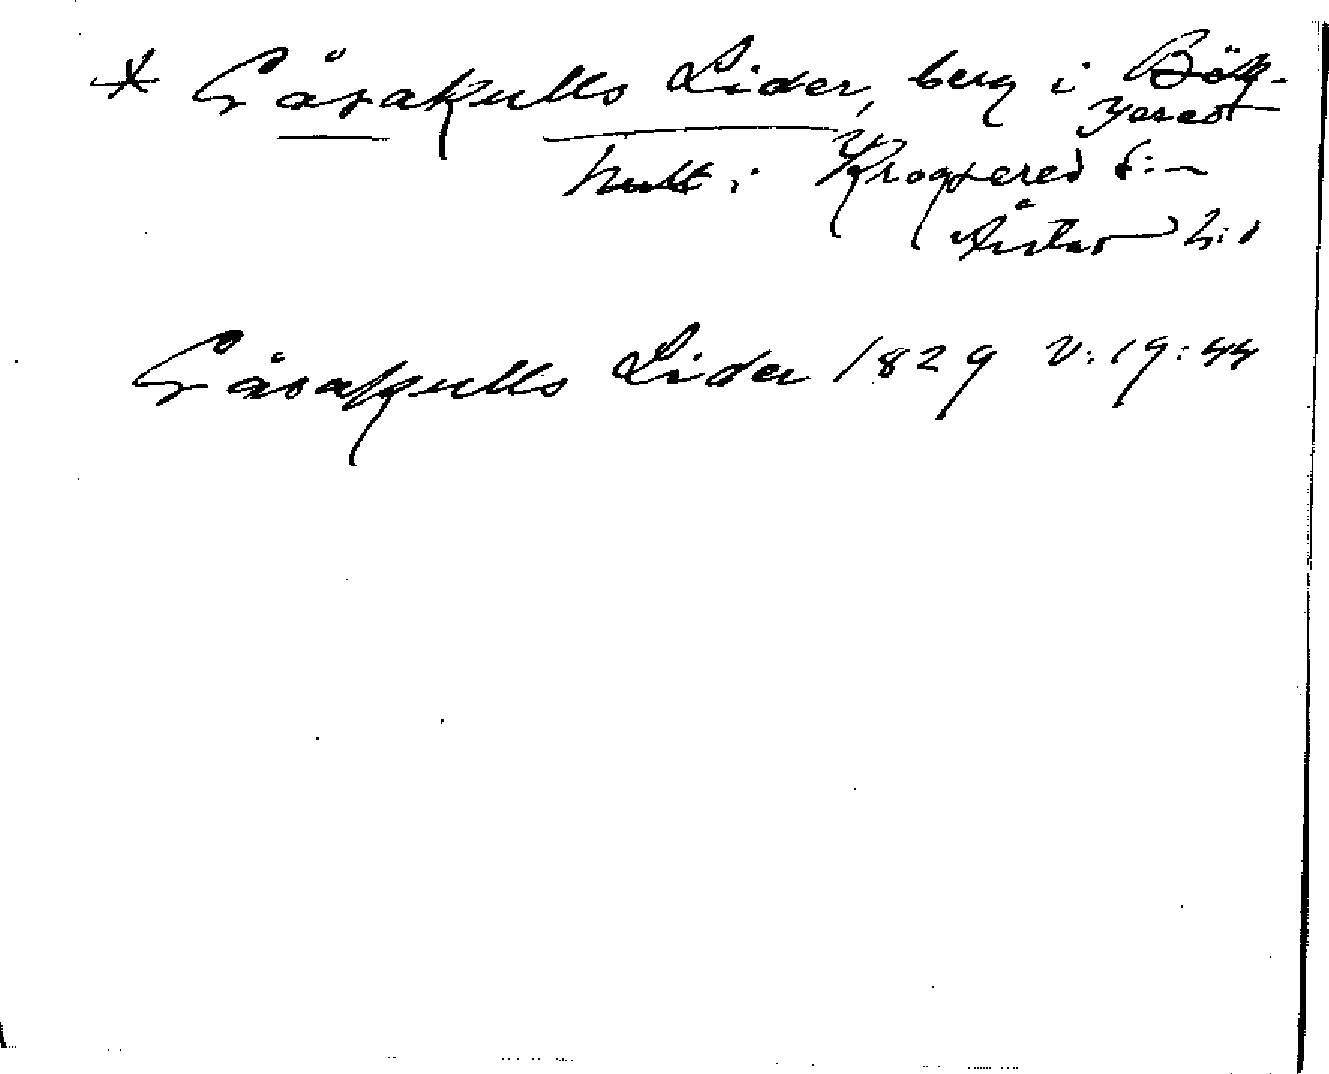 * Gåsakulls Lider, berg i Bök-
hult i Krogsered s:n
Årstad h:d
Gåsakulls Lider 1829 V:19:44